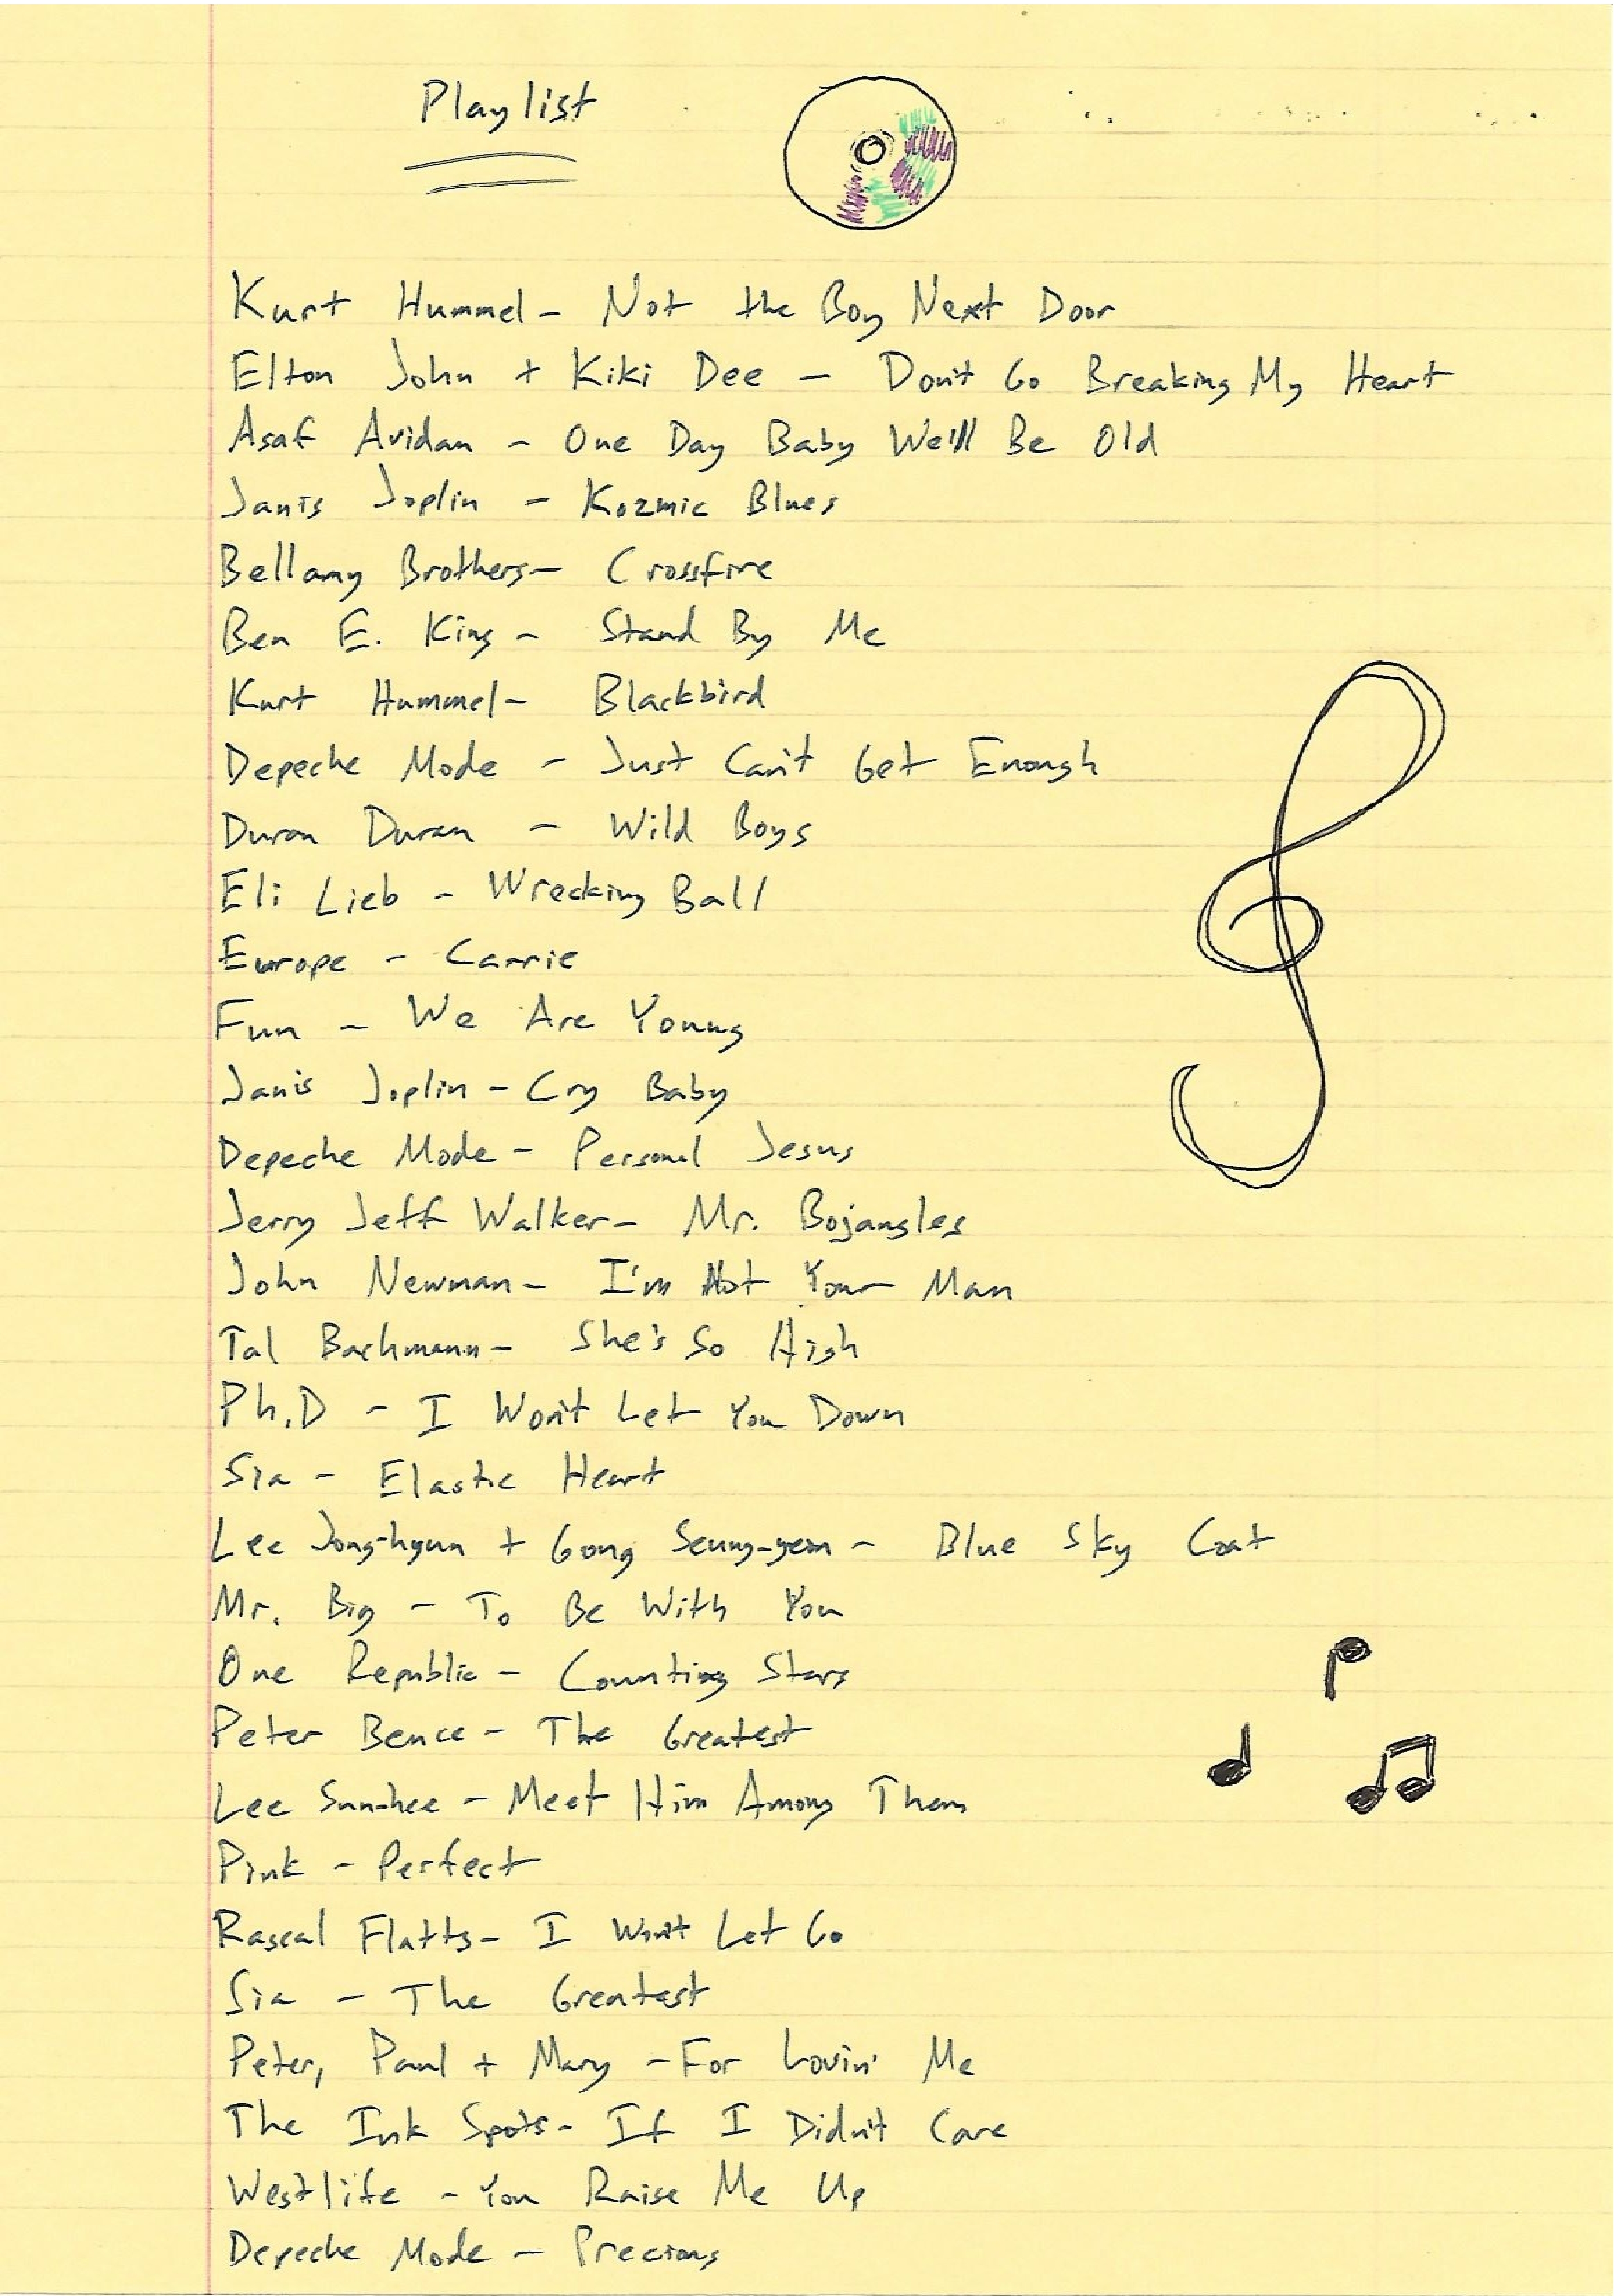 Playlist
Kurt Hummel - Not the Boy Next Door
Elton John + Kiki Dee - Don't Go Breaking My Heart
Asaf Avidan - One Day Baby We'll Be Old
Janis Joplin - Kozmic Blues
Bellamy Brothers - Crossfire
Ben E. King - Stand By Me
Kurt Hummel - Blackbird
Depeche Mode - Just Can't Get Enough
Duran Duran - Wild Boys
Eli Lieb - Wrecking Ball
Europe - Carrie
Fun - We Are Young
Janis Joplin - Cry Baby
Depeche Mode - Personal Jesus
Jerry Jeff Walker - Mr. Bojangles
John Newman - I'm Not Your Man
Tal Bachmann - She's So High
Ph.D - I Won't Let You Down
Sia - Elastic Heart
Lee Jong-hyun + Gong Seung-yeon - Blue Sky Coat
Mr. Big - To Be With You
One Republic - Counting Stars
Peter Bence - The Greatest
Lee Sun-hee - Meet Him Among Them
Pink - Perfect
Rascal Flatts - I Won't Let Go
Sia - The Greatest
Peter, Paul + Mary - For Lovin' Me
The Ink Spots - If I Didn't Care
Westlife - You Raise Me Up
Depeche Mode - Precious